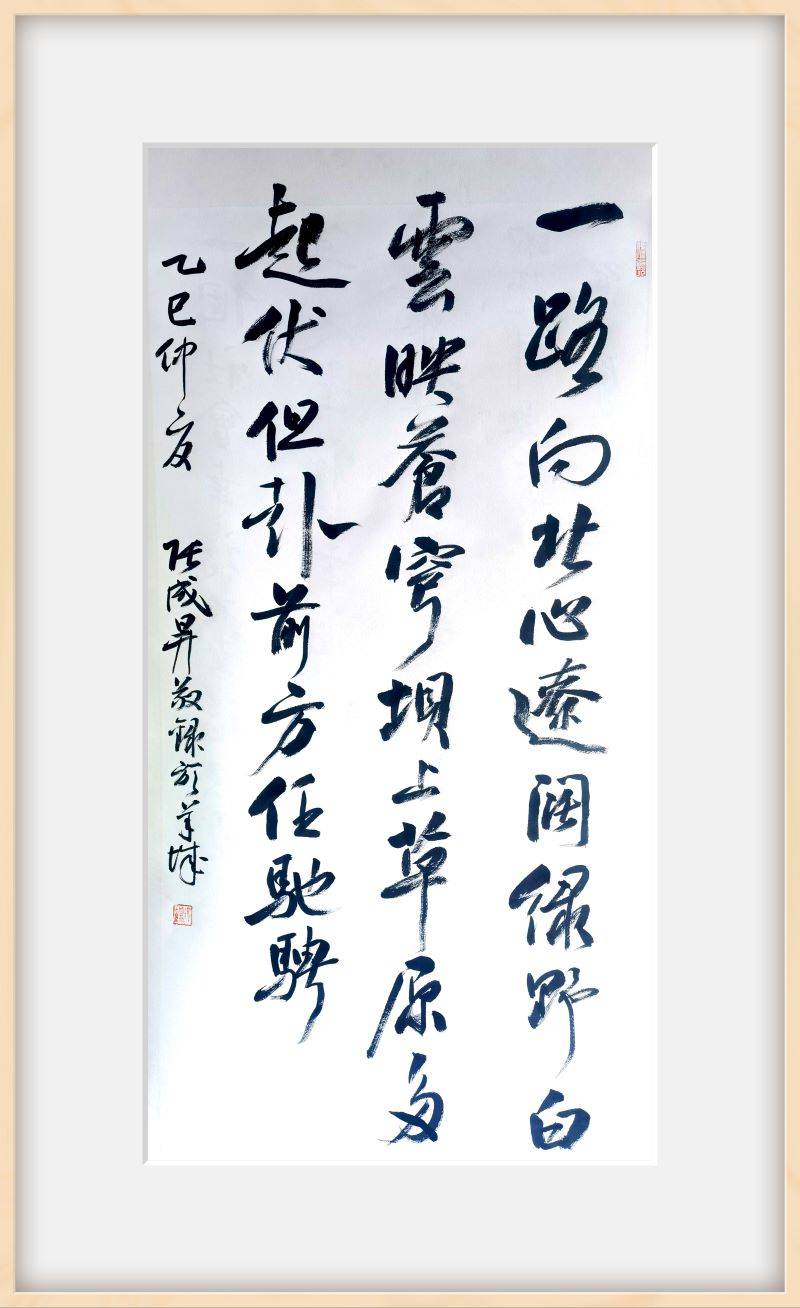 一路向北心遼阔绿野白
雲映蒼穹坝上草原多
起伏但赴前方任馳騁
乙巳仲夏 張成昇敬録於羊城